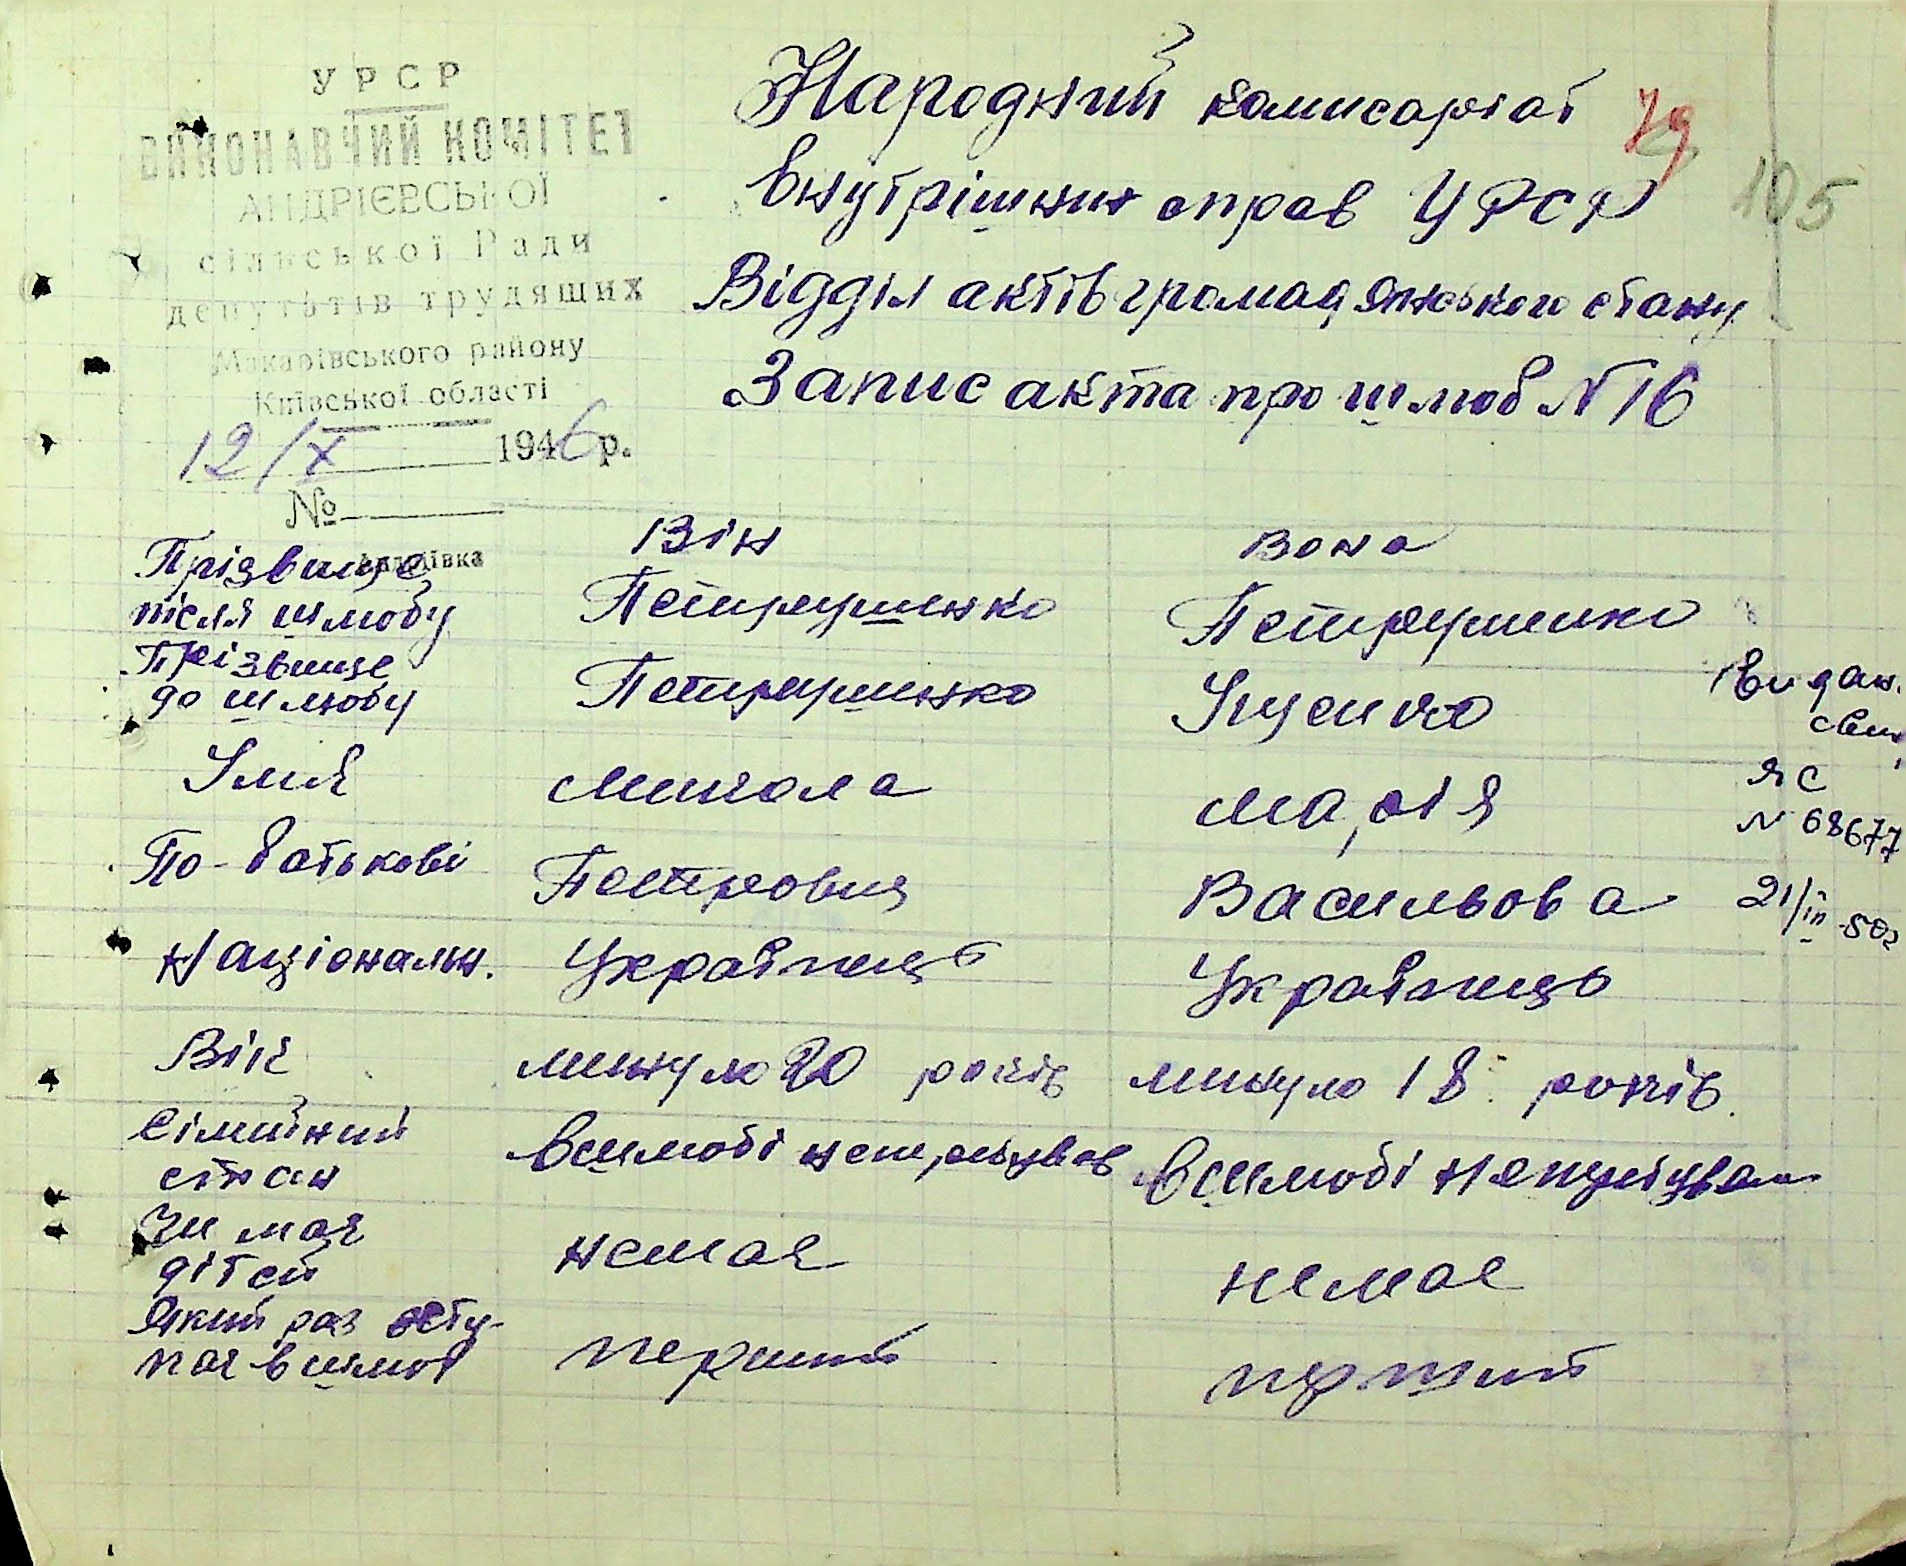 УРСР
ВИКОНАВЧИЙ КОМІТЕТ
АНДРІЄВСЬКОЇ
сільської Ради
депутатів трудящих
Макарівського району
Київської області
12/X 1946 р.
№
Народний комисаріат
79
внутрішних справ УРСР
105
Відділ актів громадянського стану
Запис акта про шлюб N 16
Він Вона
Прізвище
після шлюбу Петрушенко Петрушенко
Прізвище
до шлюбу Петрушенко
Видан.
свид
Імия Микола Марія
ЯС
N 68677
По-батькові Петрович Васильовна
21/III-50г
Національн. Українець Українець
Вік минуло 20 років минуло 18 років
Сімийний
стан в шлюбі не в шлюбі не
Чи має
дітей немає немає
Який раз всту-
пає в шлюб перший перший